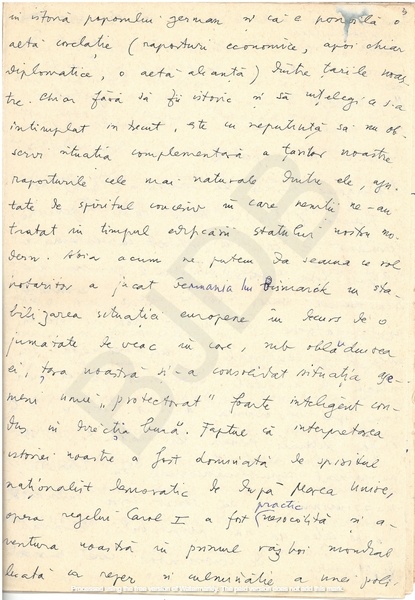 3
în istoria poporului german și că e posibilă o
altă corelație (raporturi economice, apoi chiar
diplomatice, o altă alianță) între țările noas-
tre. Chiar fără să fii istoric și să înțelegi ce s-a
întîmplat în trecut, este cu neputință să nu ob-
servi situația complementară a țărilor noastre
raporturile cele mai naturale între ele, aju-
tate de spiritul concesiv în care nemții ne-au
tratat în timpul edificării statului nostru mo-
dern. Abia acum ne putem da seama ce rol
a jucat Germania lui Bismarck în sta-
bilizarea situației europene în decurs de o
jumătate de veac în care, sub oblăduirea
ei, țara noastră și-a consolidat situația ase-
meni unui „protectorat" foarte inteligent con-
dus în direcția bună". Faptul că interpretarea
istoriei noastre a fost dominată de spiritul
naționalist democratic de după Marea Unire,
practic
opera regelui Carol I a fost și a-
ventura noastră în primul război mondial
luată ca reper și culminație a unei poli-
BJDB